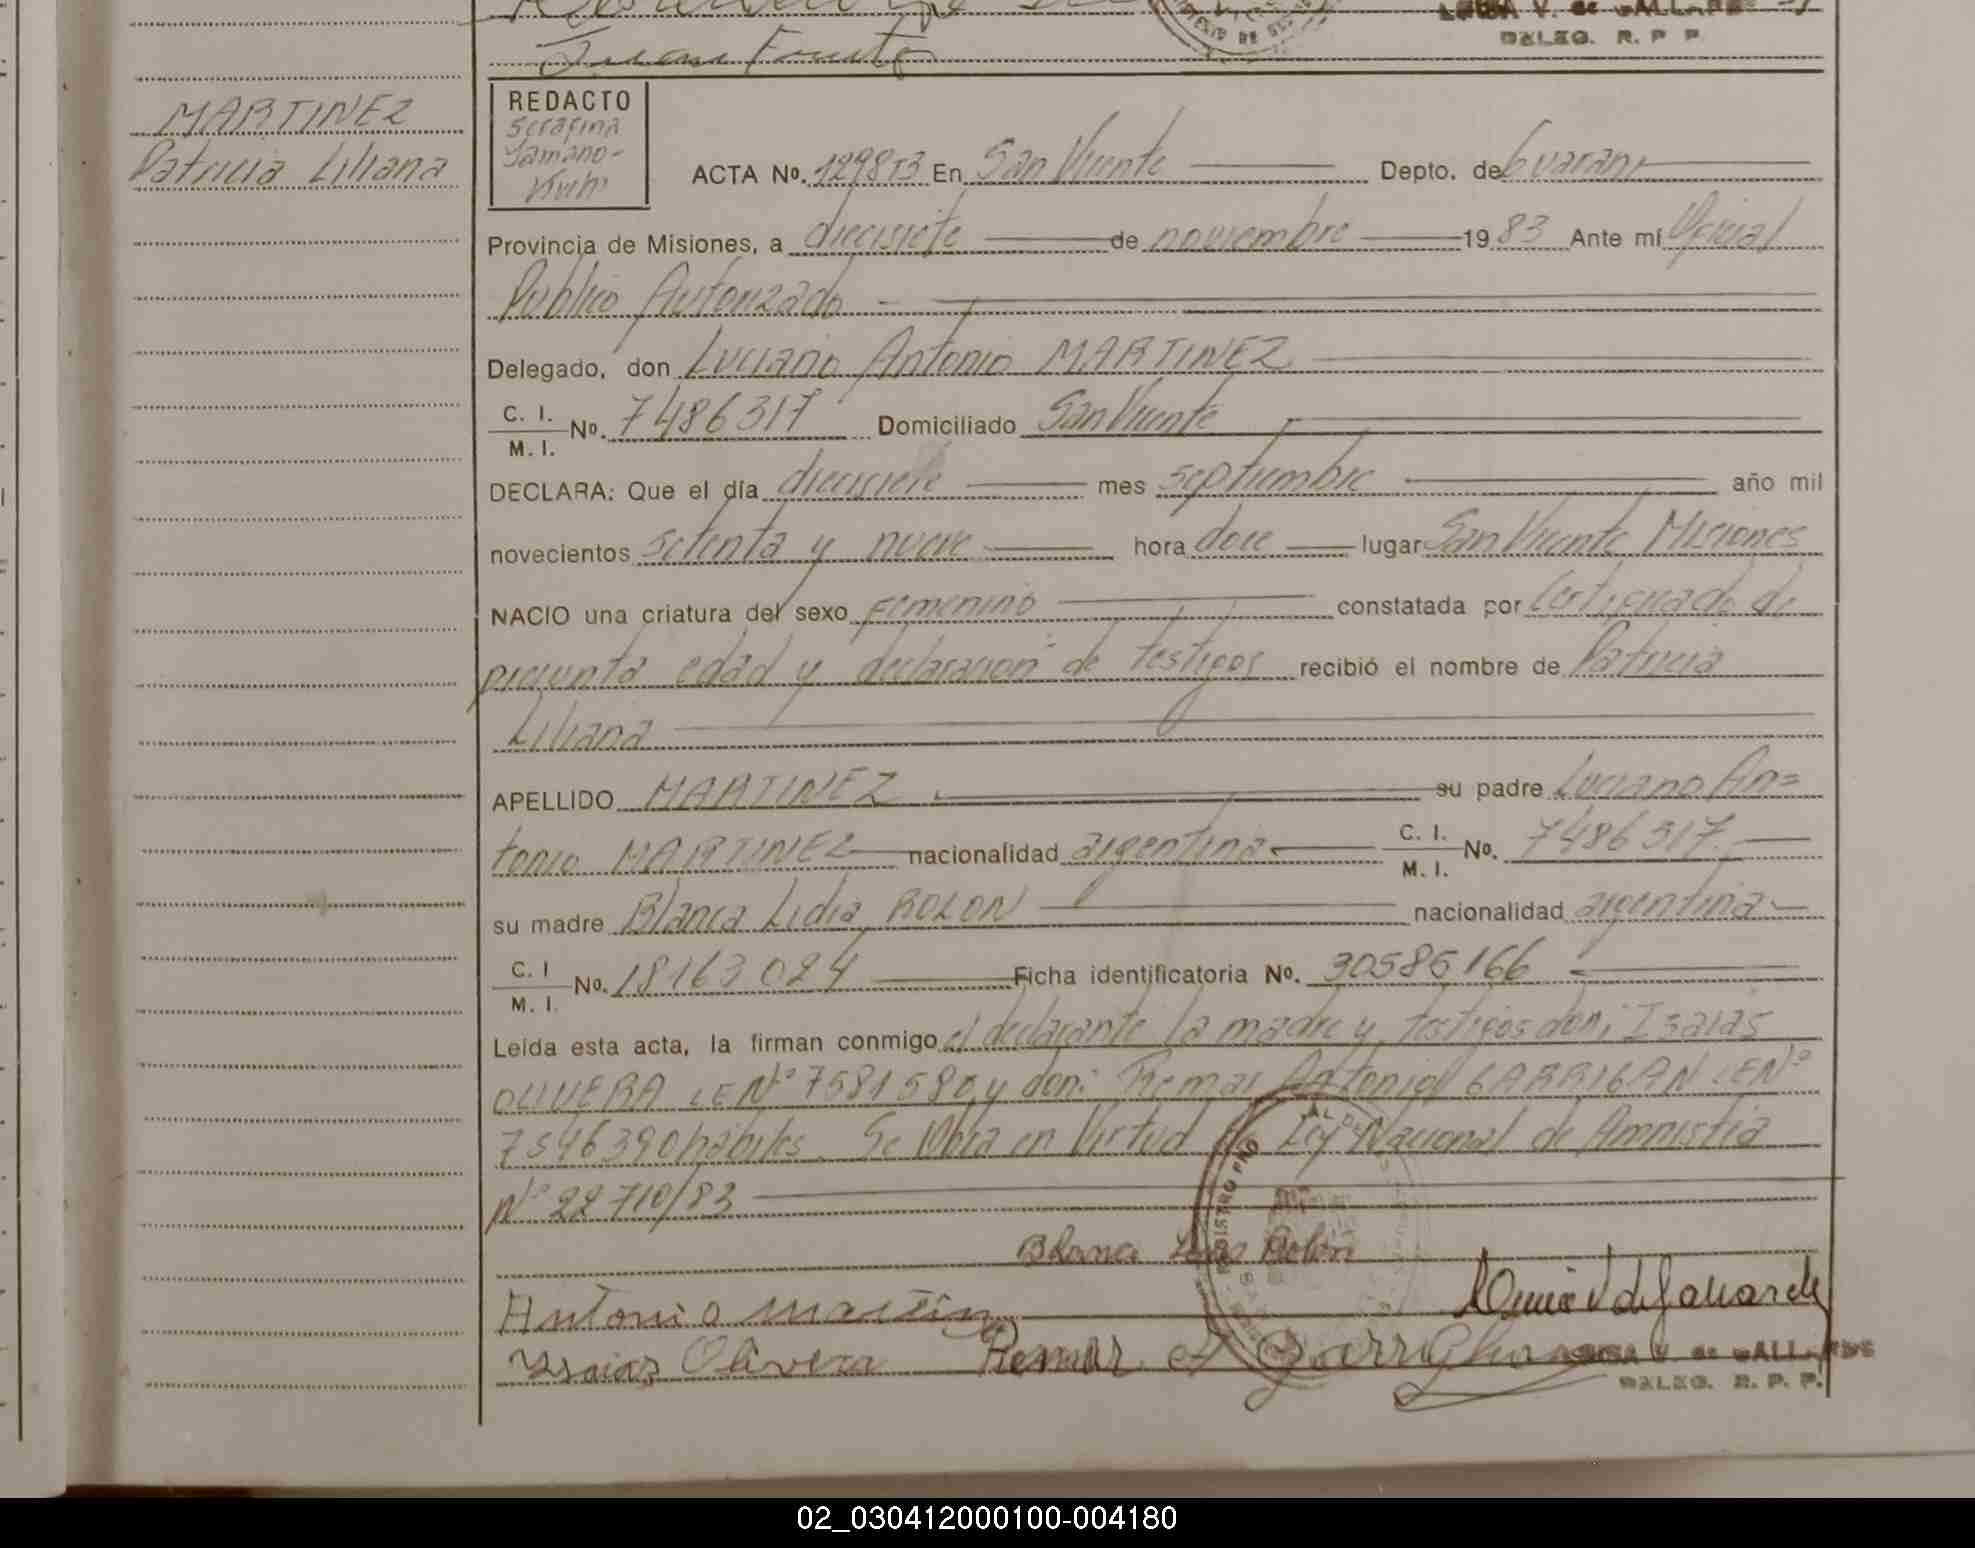 Juan Fruto
DELEG. R. P. P.
MARTINEZ
Patricia Liliana
REDACTO
Serafina
ACTA Nº. 129813 En San Vicente Depto. de Guarani
Provincia de Misiones, a diecisiete de noviembre 1983 Ante mí Oficial
Publico Autorizado
Delegado, don Luciano Antonio MARTINEZ
C. I.
M. I. Nº. 7486317 Domiciliado San Vicente
DECLARA: Que el día diecisiete mes septiembre año mil
novecientos setenta y nueve hora doce lugar San Vicente Misiones
NACIO una criatura del sexo Femenino constatada por Certificado de
presunta edad y declaracion de testigos recibió el nombre de Patricia
Liliana
APELLIDO MARTINEZ su padre Luciano An=
tonio MARTINEZ nacionalidad argentina C. I.
M. I. Nº. 7486317
su madre Blanca Lidia ROLON nacionalidad argentina
C. I
M. I. Nº. 18163024 Ficha identificatoria Nº. 30585166
Leída esta acta, la firman conmigo el declarante la madre y testigos don: Isaias
OLIVERA LE Nº 7581580, y don: Remar Antonio GARRIGAN LE Nº
7546390 habiles. Se labra en Virtud Ley Nacional de Amnistia
Nº 22710/83
Blanca Rolon
Antonio Martinez
Ysaias Olivera Remar A Garrighan
DELEG. R. P. P.
02_030412000100-004180